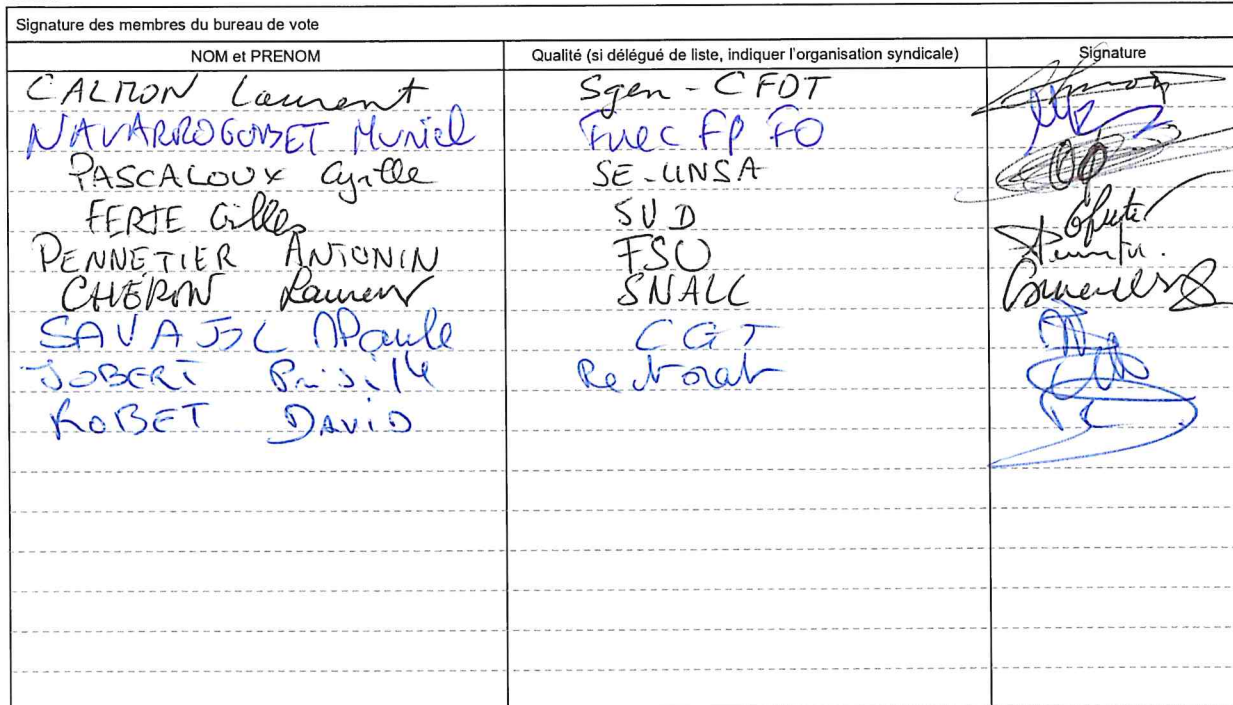 Signature des membres du bureau de vote
NOM et PRENOM Qualité (si délégué de liste, indiquer l'organisation syndicale) Signature
CALMON Laurent Sgen - CFDT
NAVARRO GOBET Muriel Fnec FP FO
PASCALOUX Cyrille SE-UNSA
FERTE Gilles SUD
PENNETIER ANTONIN FSU
CHERON Laurent SNALC
SAVAJOL MPaule CGT
JOBERT Rectorat
ROBET DAVID